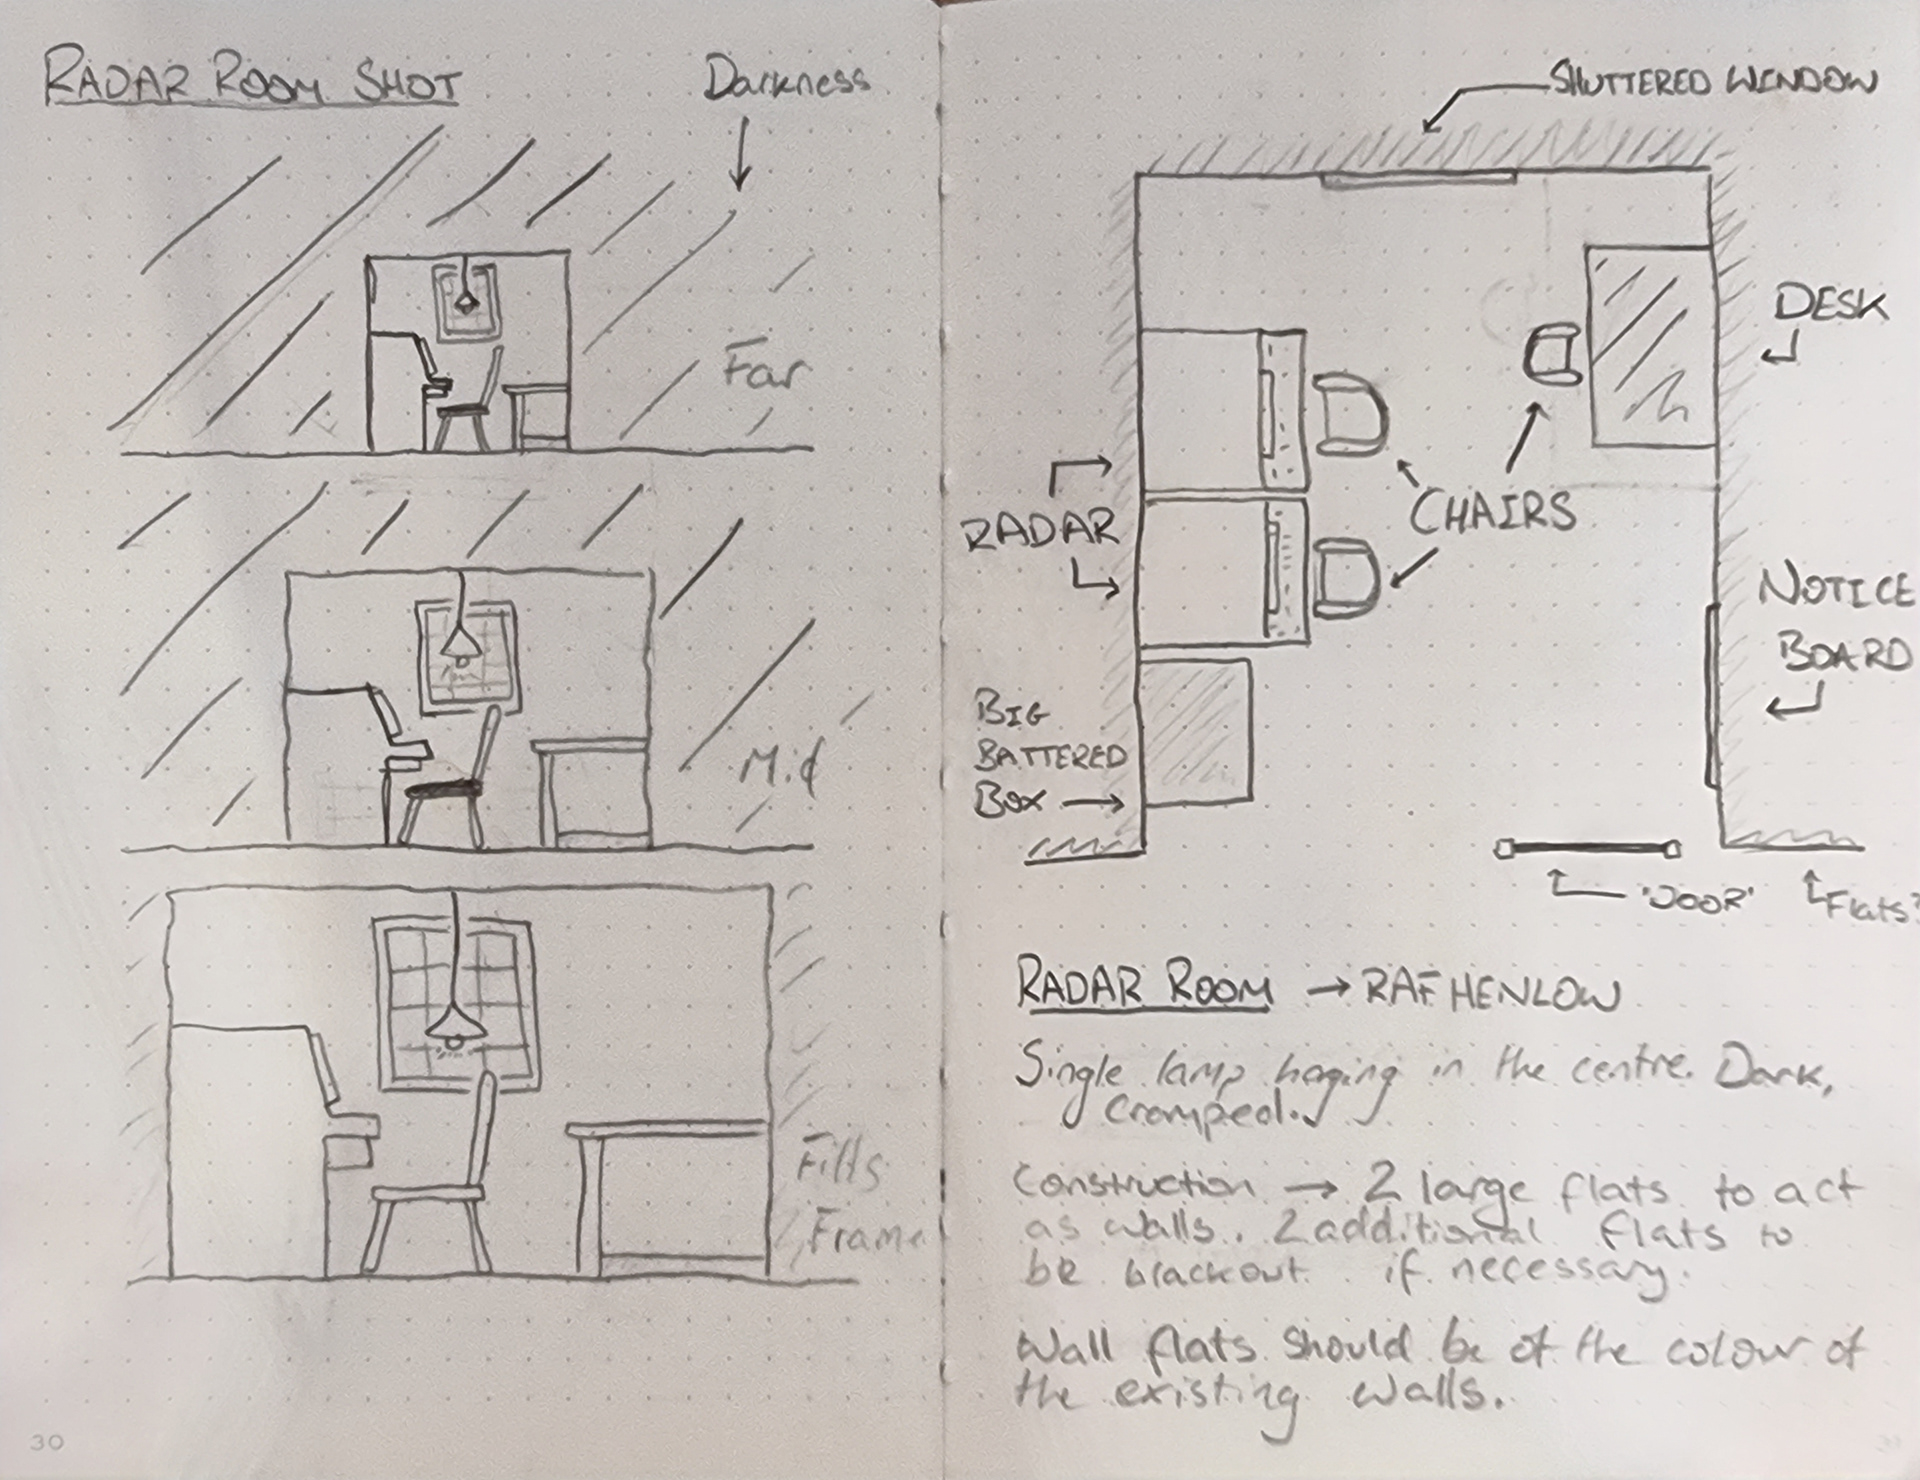 RADAR ROOM SHOT
Darkness
Far
Mid
Fills
Frame
30
SHUTTERED WINDOW
DESK
CHAIRS
RADAR
NOTICE
BOARD
BIG
BATTERED
BOX
'DOOR'
Flats?
RADAR ROOM → RAF HENLOW
Single lamp haging in the centre. Dark,
cramped.
Construction → 2 large flats to act
as walls. 2 additional flats to
be blackout if necessary.
Wall flats should be of the colour of
the existing walls.